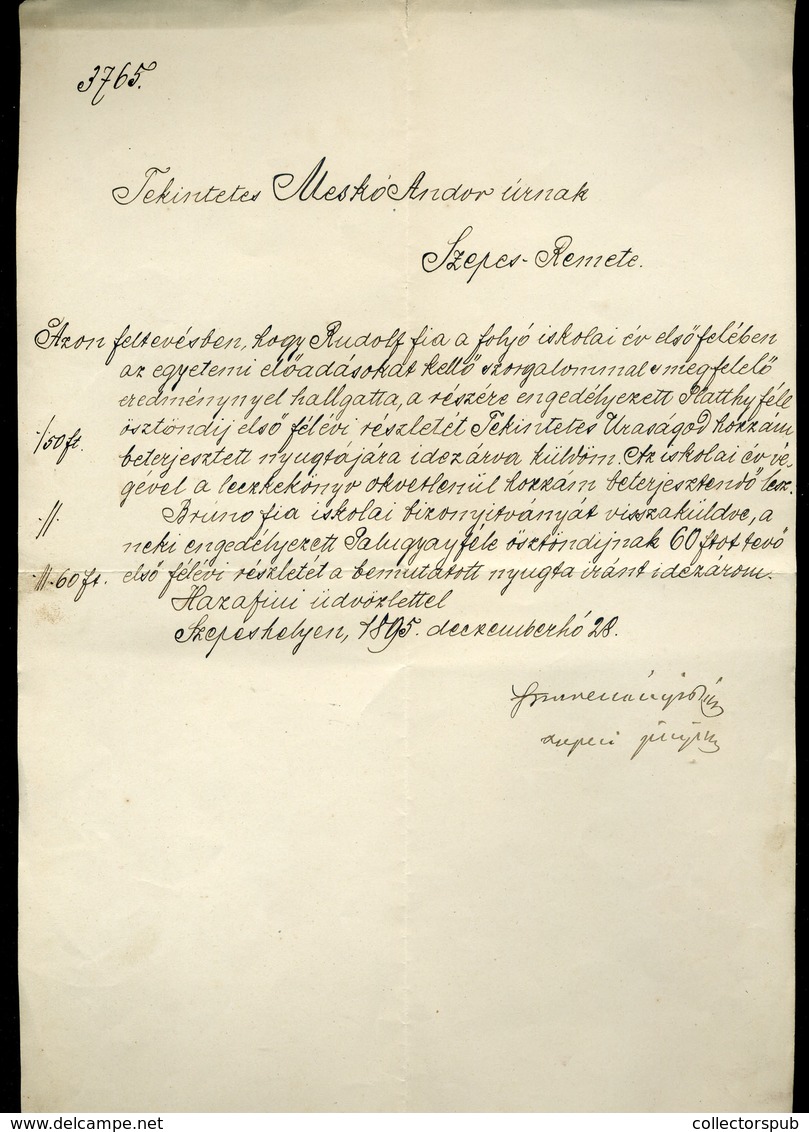 3765.
Tekintetes Meskó Andor úrnak
Szepes-Remete.
Azon feltevésben, hogy Rudolf fia a folyó iskolai év első felében
az egyetemi előadásokat kellő szorgalommal s megfelelő
eredménynyel hallgatta, a részére engedélyezett Platthyféle
./50 ft. ösztöndij első félévi részletét Tekintetes Uraságod hozzám
beterjesztett nyugtájára idezárva küldöm. Az iskolai év vé-
gével a leczkekönyv okvetlenül hozzám beterjesztendő lesz.
.//. Brúno fia iskolai bizonyitványát visszaküldve, a
neki engedélyezett Palugyayféle ösztöndijnak 60 ftot tevő
.///. 60 ft. első félévi részletét a bemutatott nyugta iránt idezárom.
Hazafiui üdvözlettel
Szepeshelyen, 1895. deczemberhó 28.
www.delcampe.net
collectorspub